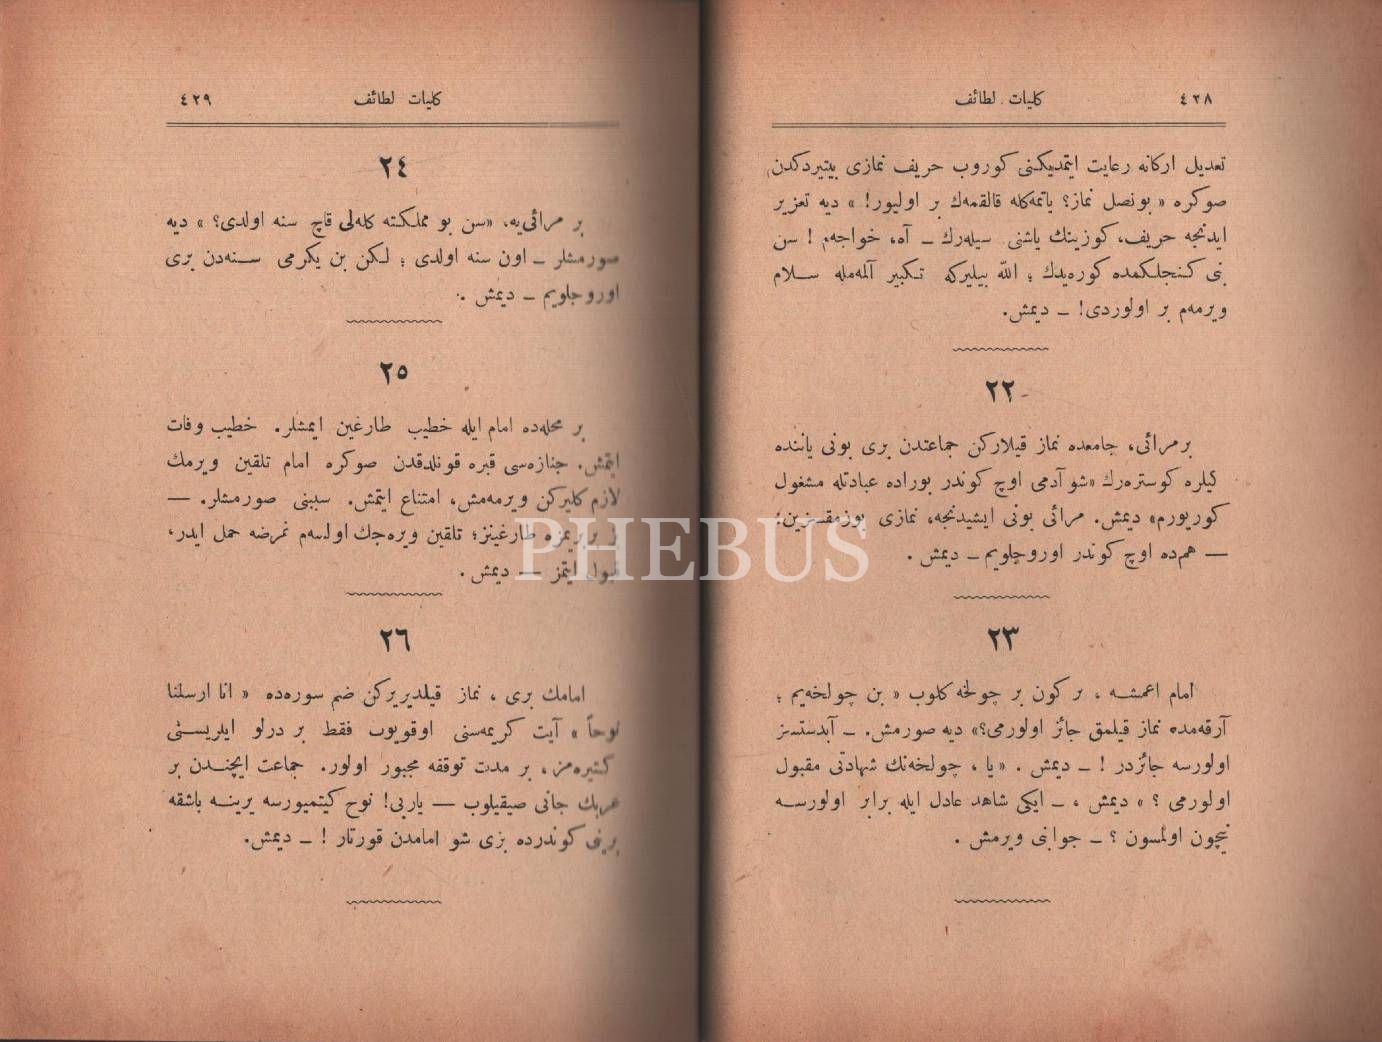 ٤٢٨
كليات لطائف
تعديل اركانه رعايت ايتمديكنى كوروب حريف نمازى بيتيردكدن
صوكره « بونصل نماز؟ ياتمه‌كله قالقمه‌ك بر اوليور! » ديه تعزير
ايدنجه حريف، كوزينك ياشنى سيله‌رك ـ آه، خواجه‌م ! سن
بنى كنجلكمده كوره‌يدك ؛ الله بيليركه تكبير آلمه‌مله سلام
ويرمه‌م بر اولوردى! ـ ديمش.
٢٢
برمرائى، جامعده نماز قيلاركن جماعتدن برى بونى ياننده
كيلره كوستره‌رك «شو آدمى اوچ كوندر بوراده عبادتله مشغول
كوريورم» ديمش. مرائى بونى ايشيدنجه، نمازى بوزمقسزين؛
— هم‌ده اوچ كوندر اوروجلويم ـ ديمش .
٢٣
امام اعمشه ، بر كون بر چولخه كلوب « بن چولخه‌يم ؛
آرقه‌مده نماز قيلمق جائز اولورمى؟» ديه صورمش. ـ آبدستسز
اولورسه جائزدر ! ـ ديمش . «يا ، چولخه‌نك شهادتى مقبول
اولورمى ؟ » ديمش ، ـ ايكى شاهد عادل ايله برابر اولورسه
نيچون اولمسون ؟ ـ جوابنى ويرمش .
٤٢٩
كليات لطائف
٢٤
بر مرائى‌يه، «سن بو مملكته كله‌لى قاچ سنه اولدى؟ » ديه
صورمشلر ـ اون سنه اولدى ؛ لكن بن يكرمى سنه‌دن برى
اوروجلويم ـ ديمش .
٢٥
بر محله‌ده امام ايله خطيب طارغين ايمشلر. خطيب وفات
ايتمش. جنازه‌سى قبره قونلدقدن صوكره امام تلقين ويرمك
لازم كليركن ويرمه‌مش، امتناع ايتمش. سببنى صورمشلر. —
بز بربريمزه طارغينز؛ تلقين ويره‌جك اولسه‌م غرضه حمل ايدر،
قبول ايتمز — ديمش .
٢٦
امامك برى ، نماز قيلديريركن ضم سوره‌ده « انا ارسلنا
نوحاً » آيت كريمه‌سنى اوقويوب فقط بر درلو ايلريسنى
كتيره‌مز، بر مدت توقفه مجبور اولور. جماعت ايچندن بر
عربك جانى صيقيلوب — ياربى! نوح كيتميورسه يرينه باشقه
برينى كوندرده بزى شو امامدن قورتار ! ـ ديمش.
PHEBUS